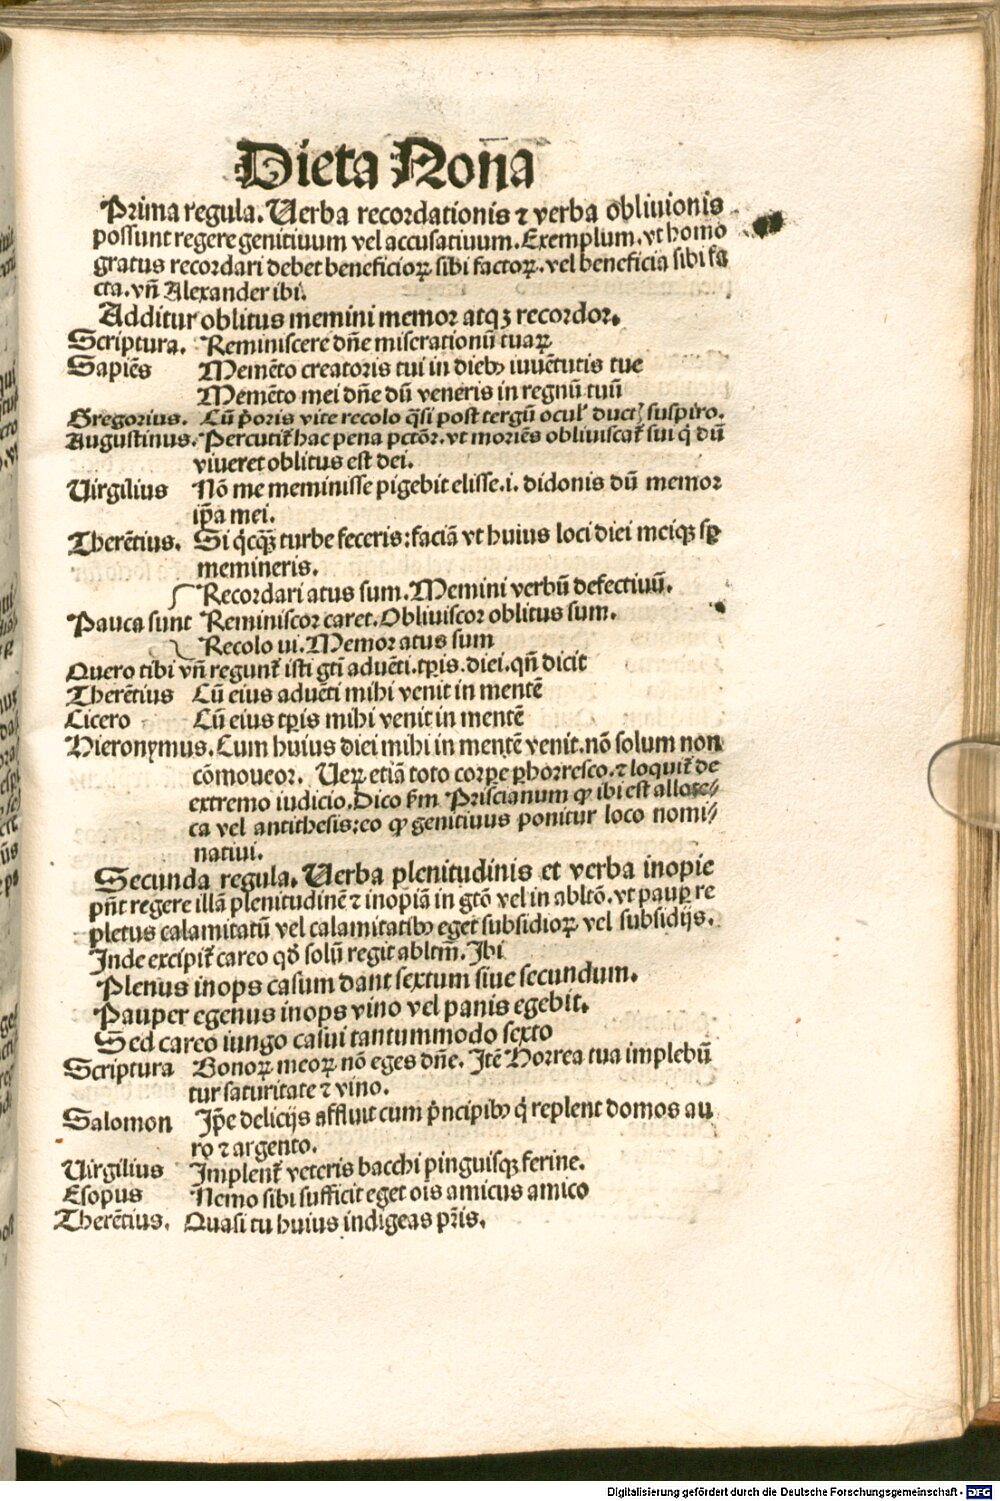 Dieta Noña
Prima regula. Verba recordationis ⁊ verba obliuionis
possunt regere genitiuum vel accusatiuum. Exemplum. vt homo
gratus recordari debet beneficioꝝ sibi factoꝝ. vel beneficia sibi fa
cta. vñ Alexander ibi.
Additur oblitus memini memor atqꝫ recordor.
Scriptura. Reminiscere dñe miserationū tuaꝝ
Sapiēs Memēto creatoris tui in diebꝰ iuuētutis tue
Memēto mei dñe dū veneris in regnū tuū
Gregorius. Cū p̄oris vite recolo q̄si post tergū ocul' duct̄ suspiro.
Augustinus. Percutit̄ hac pena pctōr. vt moriēs obliuiscat̄ sui q̇ dū
viueret oblitus est dei.
Virgilius Nō me meminisse pigebit elisse .i. didonis dū memor
ip̄a mei.
Therētius. Si q̇cq̄ꝫ turbe feceris: faciā vt huius loci diei meiqꝫ sꝑ
memineris.
Recordari atus sum. Memini verbū defectiuū.
Pauca sunt Reminiscor caret. Obliuiscor oblitus sum.
Recolo ui. Memor atus sum
Quero tibi vñ regunt̄ isti gtī aduēti. tꝑis. diei. qñ dicit
Therētius Cū eius aduēti mihi venit in mentē
Cicero Cū eius tꝑis mihi venit in mentē
Hieronymus. Cum huius diei mihi in mentē venit. nō solum non
cōmoueor. Veꝝ etiā toto corꝑe ꝑhorresco. ⁊ loquit̄ de
extremo iudicio. Dico f̄m Priscianum ꝙ ibi est allote⸗
ca vel antithesis: eo ꝙ genitiuus ponitur loco nomi⸗
natiui.
Secunda regula. Verba plenitudinis et verba inopie
pñt regere illā plenitudinē ⁊ inopiā in gtō vel in abltō. vt pauꝑ re
pletus calamitatū vel calamitatibꝰ eget subsidioꝝ vel subsidijs.
Inde excipit̄ careo qđ solū regit abltm̄. Ibi
Plenus inops casum dant sextum siue secundum.
Pauper egenus inops vino vel panis egebit.
Sed careo iungo casui tantummodo sexto
Scriptura Bonoꝝ meoꝝ nō eges dñe. Itē Horrea tua implebū
tur saturitate ⁊ vino.
Salomon Ip̄e delicijs affluit cum p̄ncipibꝰ q̇ replent domos au
ro ⁊ argento.
Virgilius Implent̄ veteris bacchi pinguisqꝫ ferine.
Esopus Nemo sibi sufficit eget ois amicus amico
Therētius. Quasi tu huius indigeas pr̄is.
Digitalisierung gefördert durch die Deutsche Forschungsgemeinschaft - DFG